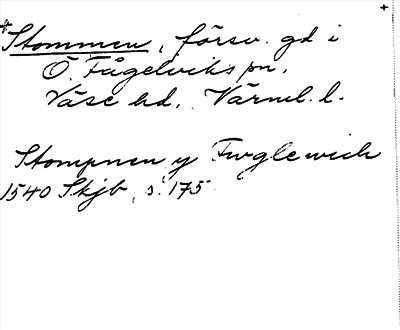 *Stommen, försv. gd i
Ö. Fågelviks pn.
Väse hd. Värml. l.
Stompnen y Fwglewich
1540 Skjb, s. 175